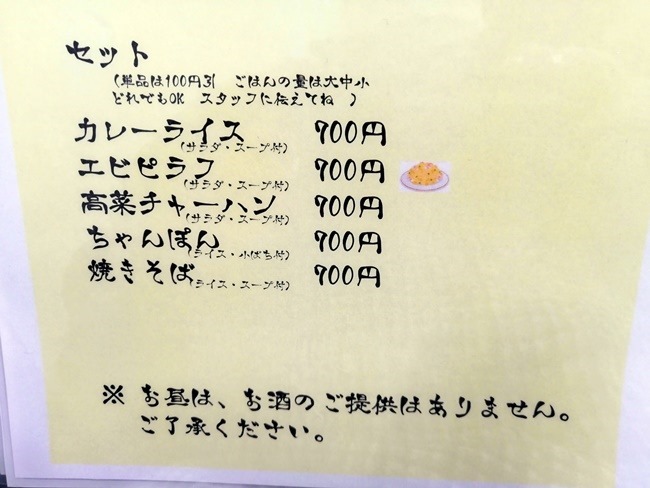 セット
(単品は100円引 ごはんの量は大中小
どれでもOK スタッフに伝えてね )
カレーライス 700円
(サラダ・スープ付)
エビピラフ 700円
(サラダ・スープ付)
高菜チャーハン 700円
(サラダ・スープ付)
ちゃんぽん 700円
(ライス・小ばち付)
焼きそば 700円
(ライス・スープ付)
※ お昼は、お酒のご提供はありません。
ご了承ください。